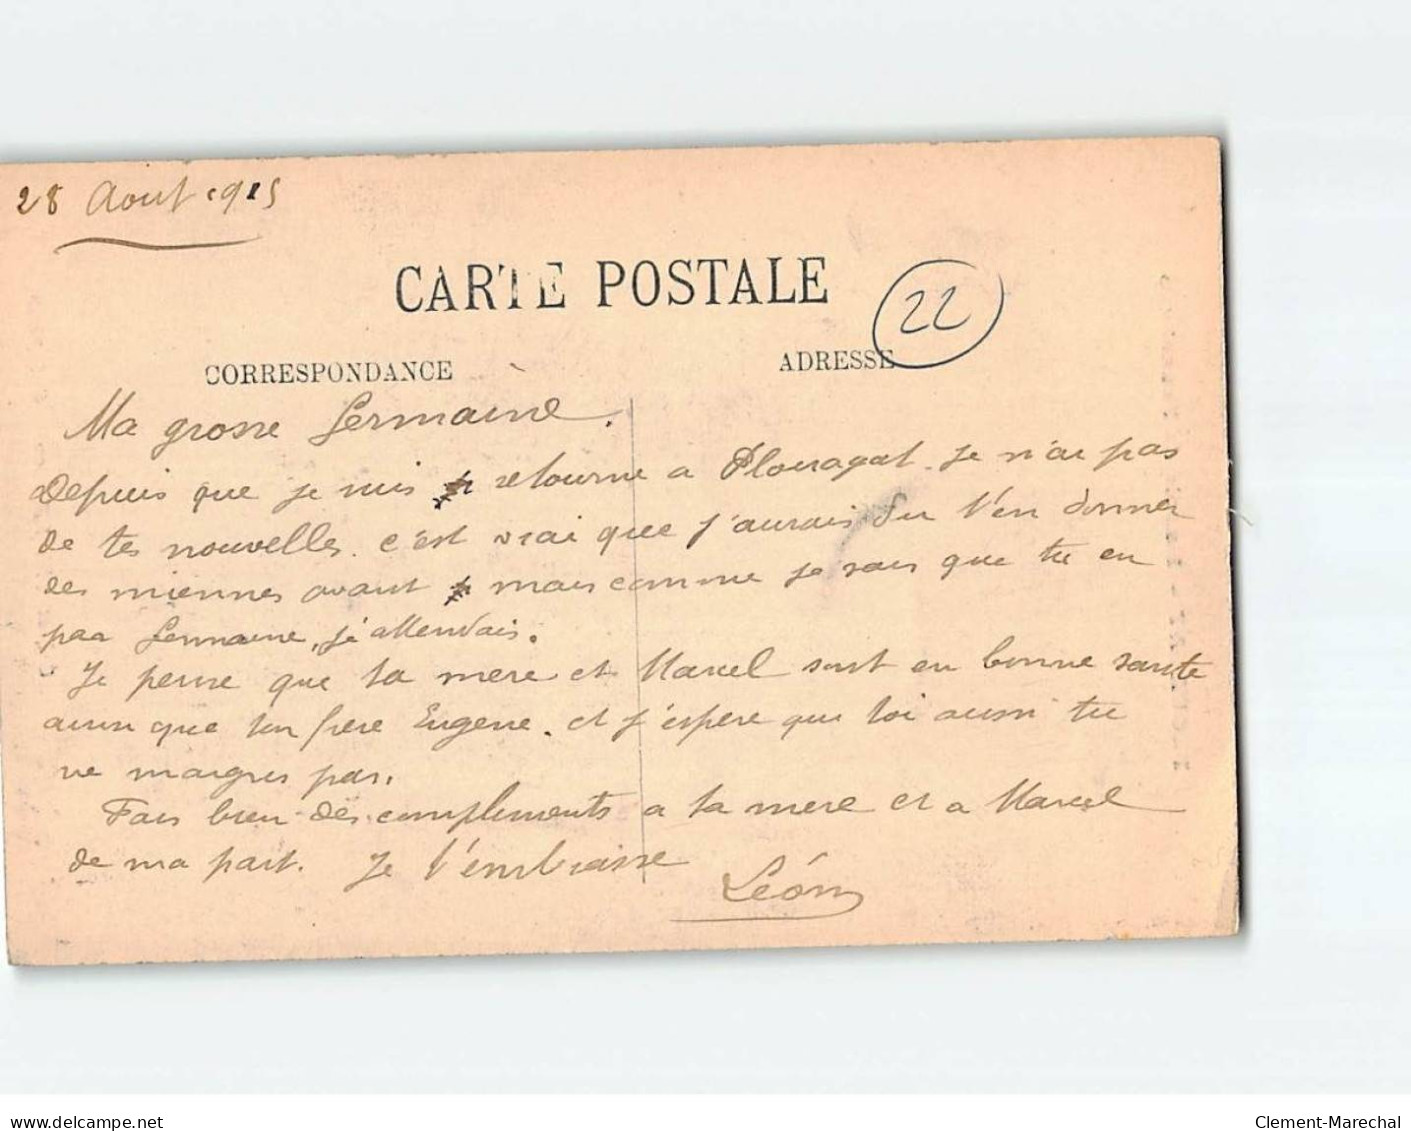 28 Aout 1915
CARTE POSTALE
22
CORRESPONDANCE
ADRESSE
Ma grosse Germaine.
Depuis que je suis retourne a Plouagat. Je n'ai pas
de tes nouvelles. c'est vrai que j'aurais du t'en donner
des miennes avant mais comme je sais que tu en
Germaine, j'attendais.
Je pense que ta mere et Marcel sont en bonne sante
ainsi que ton frere Eugene. et j'espere que toi aussi tu
ne maigris pas.
Fais bien des compliments a ta mere et a Marcel
de ma part. Je t'embrasse
Léon
www.delcampe.net
Clement-Marechal